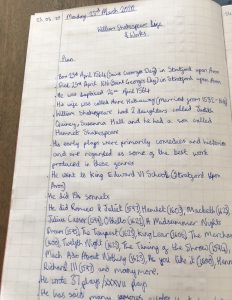 Monday 23rd March 2020
William Shakespeare Life
& Works.
Plan.
Born 23rd April 1564 (Saint Georges Day) in Stratford upon Avon
Died 23rd April 1616 (Saint Georges Day) in Stratford upon Avon
He was baptised 26th April 1564
His wife was called Anne Hathaway (married years 1582-1616)
William Shakespeare had 2 daughters called Judith
Quiney, Susanna Hall and he had a son called
Hamnet Shakespeare
His early plays were primarily comedies and histories
and are regarded as some of the best work
produced in these genres
He went to King Edward VI School (Stratford Upon
Avon)
He did 154 sonnets
He did Romeo & Juliet (1597) Hamlet (1603) Macbeth (1623)
Julius Caesar (1599) Othello (1622) A Midsummer Nights
Dream (1595) The Tempest (1611) King Lear (1606) The Merchant
Twelfth Night The Taming of the Shrew
Much Ado About Nothing As you like it Henry
Richard III (1597) and many more.
He wrote 37 plays
He has said many famous